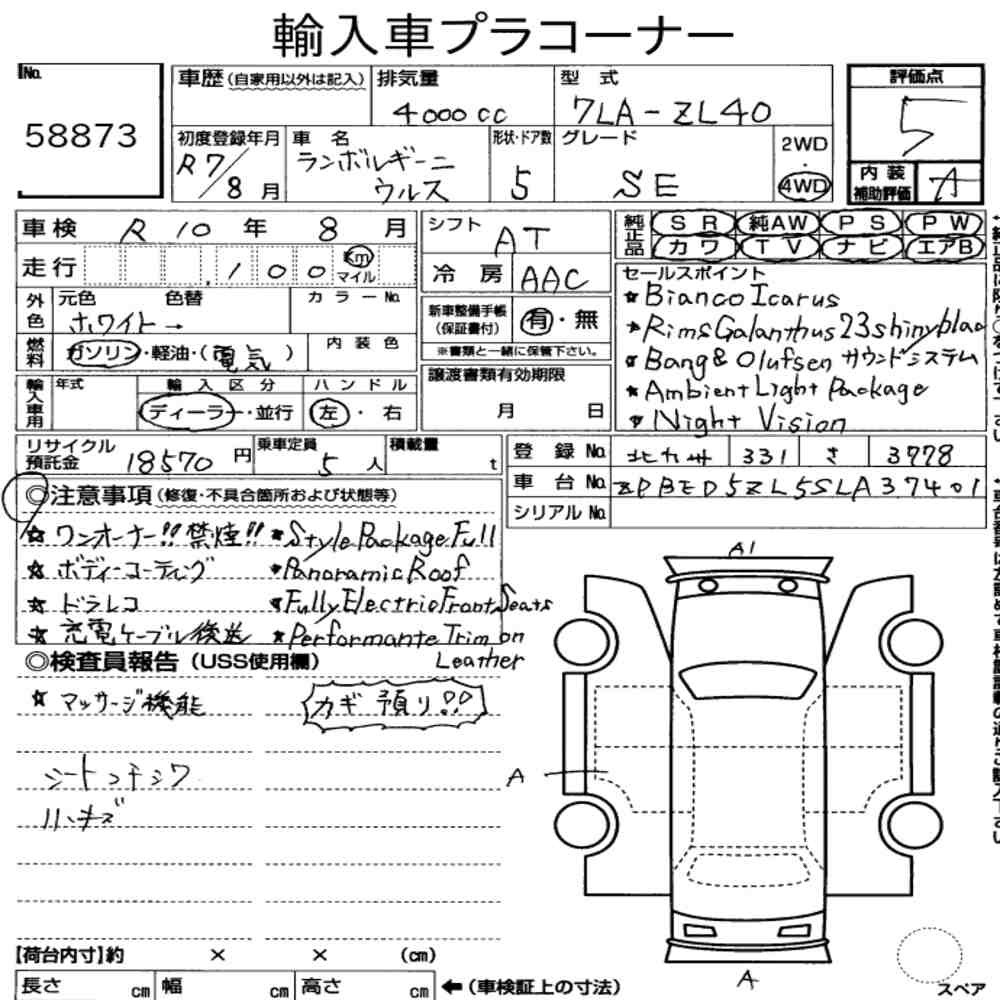 輸入車プラコーナー
No.
58873
車歴(自家用以外は記入)
排気量
4000cc
型 式
7LA-ZL40
評価点
5
初度登録年月
R7/8月
車 名
ランボルギーニ
ウルス
形状・ドア数
5
グレード
SE
2WD
・
4WD
内 装
補助評価
A
車検 R10年 8月
走行 100 Km マイル
シフト
AT
冷 房 AAC
純正品
SR 純AW PS PW
カワ TV ナビ エアB
外色
元色 色替
ホワイト→
カラーNo.
燃料
ガソリン・軽油・(電気)
内 装 色
新車整備手帳
(保証書付)
有・無
※書類と一緒に保管下さい。
セールスポイント
★Bianco Icarus
★Rims Galanthus 23 shiny blac
★Bang & Olufsen サウンドシステム
★Ambient Light Package
★Night Vision
輸入車用
年式
輸 入 区 分
ディーラー・並行
ハ ン ド ル
左・右
譲渡書類有効期限
月 日
リサイクル
預託金 18570円
乗車定員
5人
積載量
t
登 録 No. 北九州 331 さ 3778
車 台 No. ZPBED5ZL5SLA37401
シリアル No.
◎注意事項(修復・不具合箇所および状態等)
☆ワンオーナー!!禁煙!! ★Style Package Full
☆ボディーコーティング ★Panoramic Roof
☆ドラレコ ★Fully Electric Front Seats
☆充電ケーブル後送 ★Performante Trim on
Leather
◎検査員報告(USS使用欄)
☆マッサージ機能
カギ預り!!
シートコチシワ
ハンキズ
A1
A
A
【荷台内寸】約 × × (cm)
長さ cm 幅 cm 高さ cm ←(車検証上の寸法)
スペア